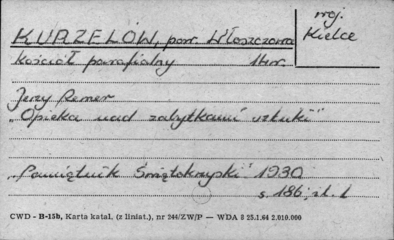 woj.
KURZELÓW, pow. Włoszczowa Kielce
kościół parafialny 14 w.
Jerzy Remer
"Opieka nad zabytkami sztuki"
"Pamiętnik Świętokrzyski" 1930
s. 186, il. 1
CWD - B-15b, Karta katal. (z liniat.), nr 244/ZW/P — WDA 8 25.1.64 2.010.000